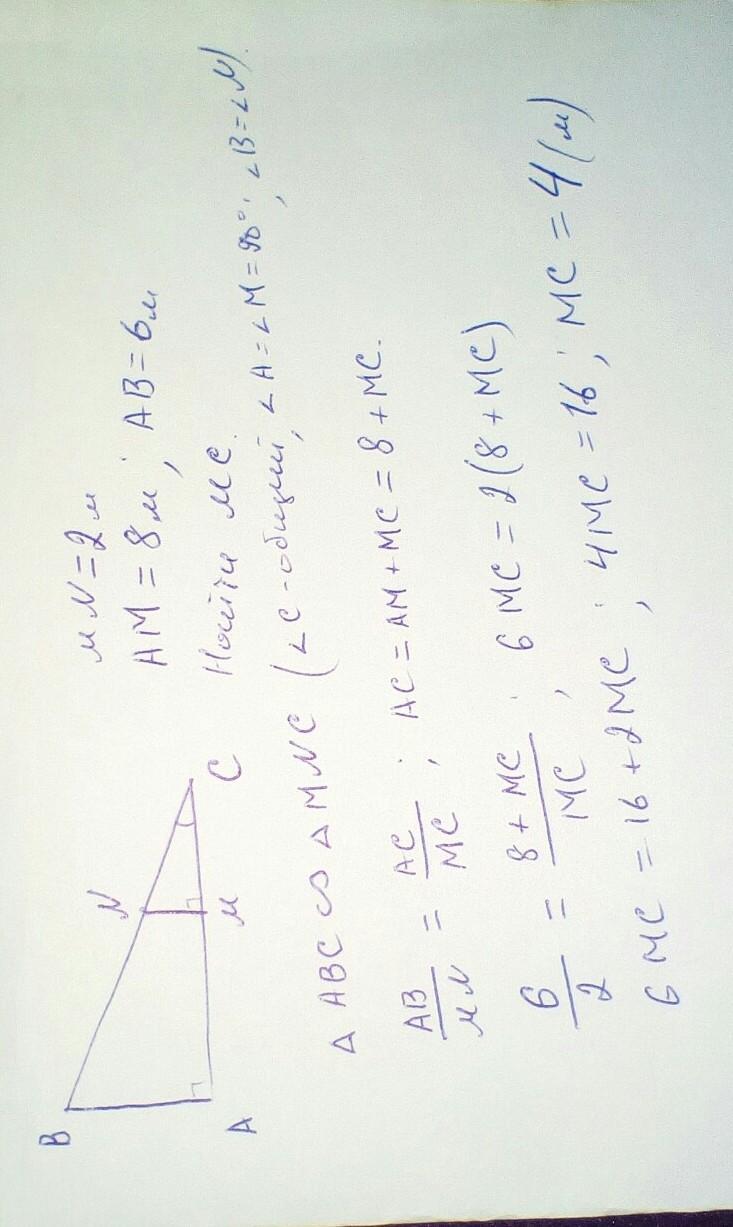 MN=2м
AM=8м; AB=6м
Найти MC.
B
N
A
M
C
△ABC ∽ △MNC (∠C-общий, ∠A=∠M=90°; ∠B=∠N).
AB/MN = AC/MC; AC=AM+MC=8+MC.
6/2 = 8+MC/MC; 6MC=2(8+MC)
6MC=16+2MC; 4MC=16; MC=4(м)